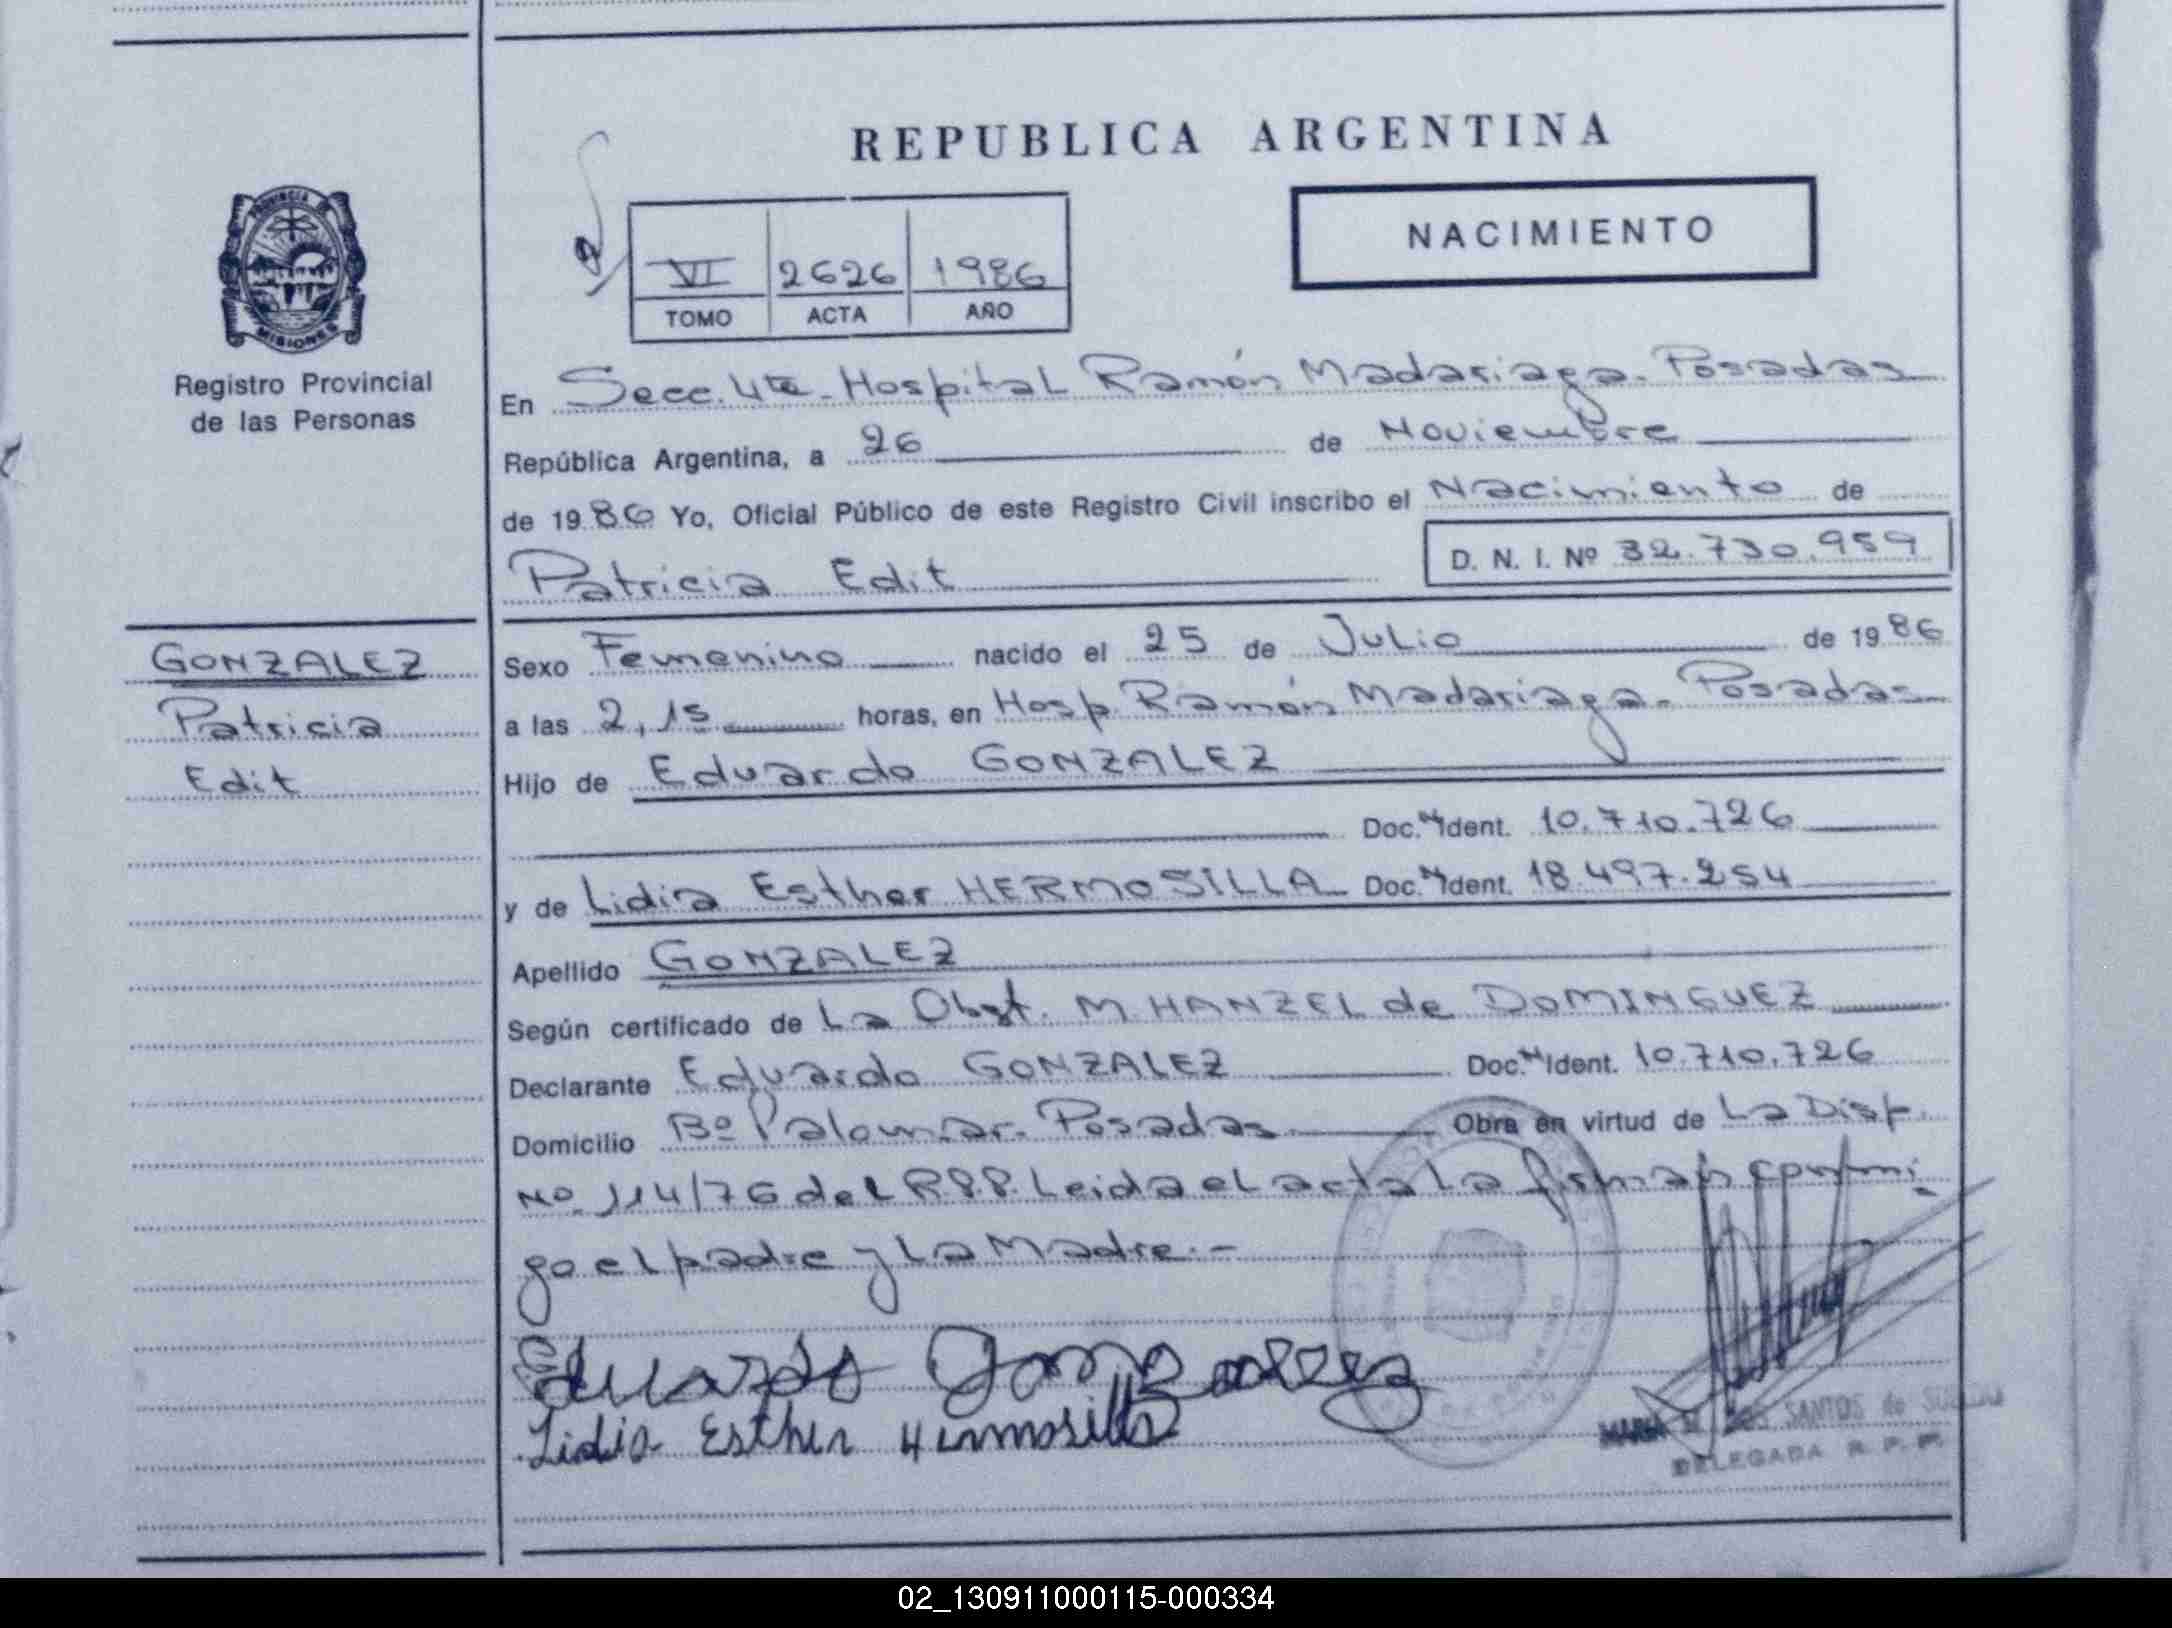 REPUBLICA ARGENTINA
NACIMIENTO
VI 2626 1986
TOMO ACTA AÑO
PROVINCIA DE
MISIONES
Registro Provincial
de las Personas
En Secc. 4ta - Hospital Ramón Madariaga - Posadas
República Argentina, a 26 de Noviembre
de 1986 Yo, Oficial Público de este Registro Civil inscribo el Nacimiento de
Patricia Edit D. N. I. Nº 32.730.959
GONZALEZ
Patricia
Edit
Sexo Femenino nacido el 25 de Julio de 1986
a las 2,15 horas, en Hosp. Ramón Madariaga - Posadas
Hijo de Eduardo GONZALEZ
Doc. N Ident. 10.710.726
y de Lidia Esther HERMOSILLA Doc. N Ident. 18.497.254
Apellido GONZALEZ
Según certificado de La Obst. M. HANZEL de DOMINGUEZ
Declarante Eduardo GONZALEZ Doc. N Ident. 10.710.726
Domicilio Bº Palomar - Posadas Obra en virtud de La Disp.
Nº 114/76 del R.P.P. Leida el acta La firman conmi
go el padre y La Madre.-
Eduardo Gonzalez
Lidia Esther Hermosilla
MARIA SANTOS de
DELEGADA R. P. P.
02_130911000115-000334